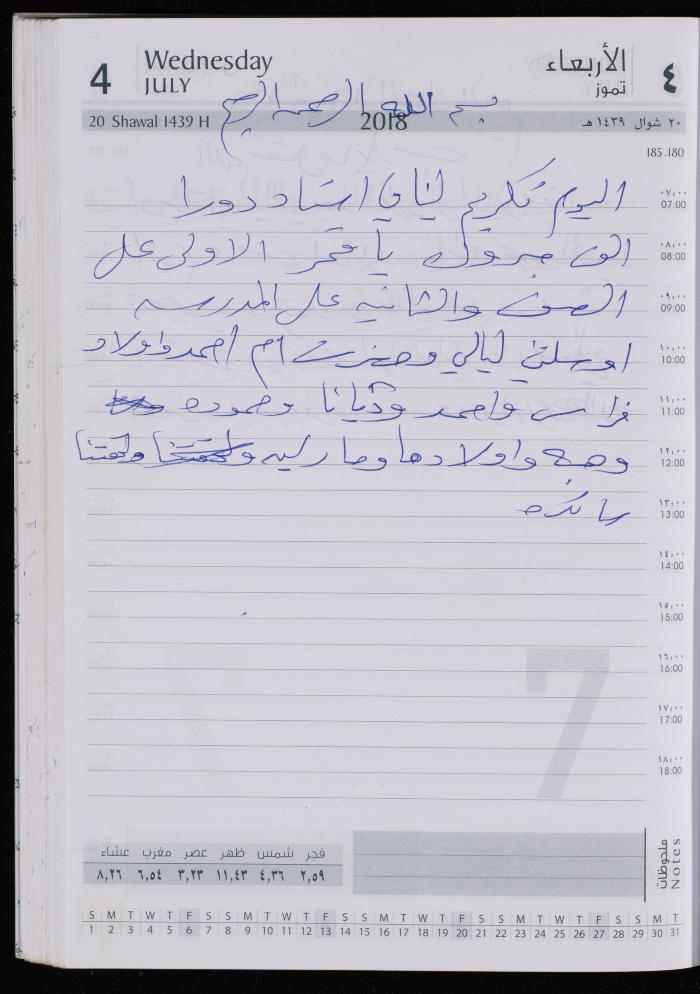 4
Wednesday
JULY
الأربعاء
تموز
٤
بسم الله الرحمن الرحيم
20 Shawal 1439 H
2018
٢٠ شوال ١٤٣٩ هـ
185.180
اليوم تكريم ليالي استاذ دورا
٠٧:٠٠
07:00
الف مبروك يا قمر الاولى على
٠٨:٠٠
08:00
الصف والثانيه على المدرسه
٠٩:٠٠
09:00
ليالي وحضرت ام احمد واولاد
١٠:٠٠
10:00
فراس واحمد وديانا وحموده
١١:٠٠
11:00
واولادها
١٢:٠٠
12:00
١٣:٠٠
13:00
١٤:٠٠
14:00
١٥:٠٠
15:00
١٦:٠٠
16:00
١٧:٠٠
17:00
١٨:٠٠
18:00
7
ملحوظات
Notes
فجر شمس ظهر عصر مغرب عشاء
٢,٥٩ ٤,٣٦ ١١,٤٣ ٣,٢٣ ٦,٥٤ ٨,٢٦
S M T W T F S S M T W T F S S M T W T F S S M T W T F S S M T
1 2 3 4 5 6 7 8 9 10 11 12 13 14 15 16 17 18 19 20 21 22 23 24 25 26 27 28 29 30 31